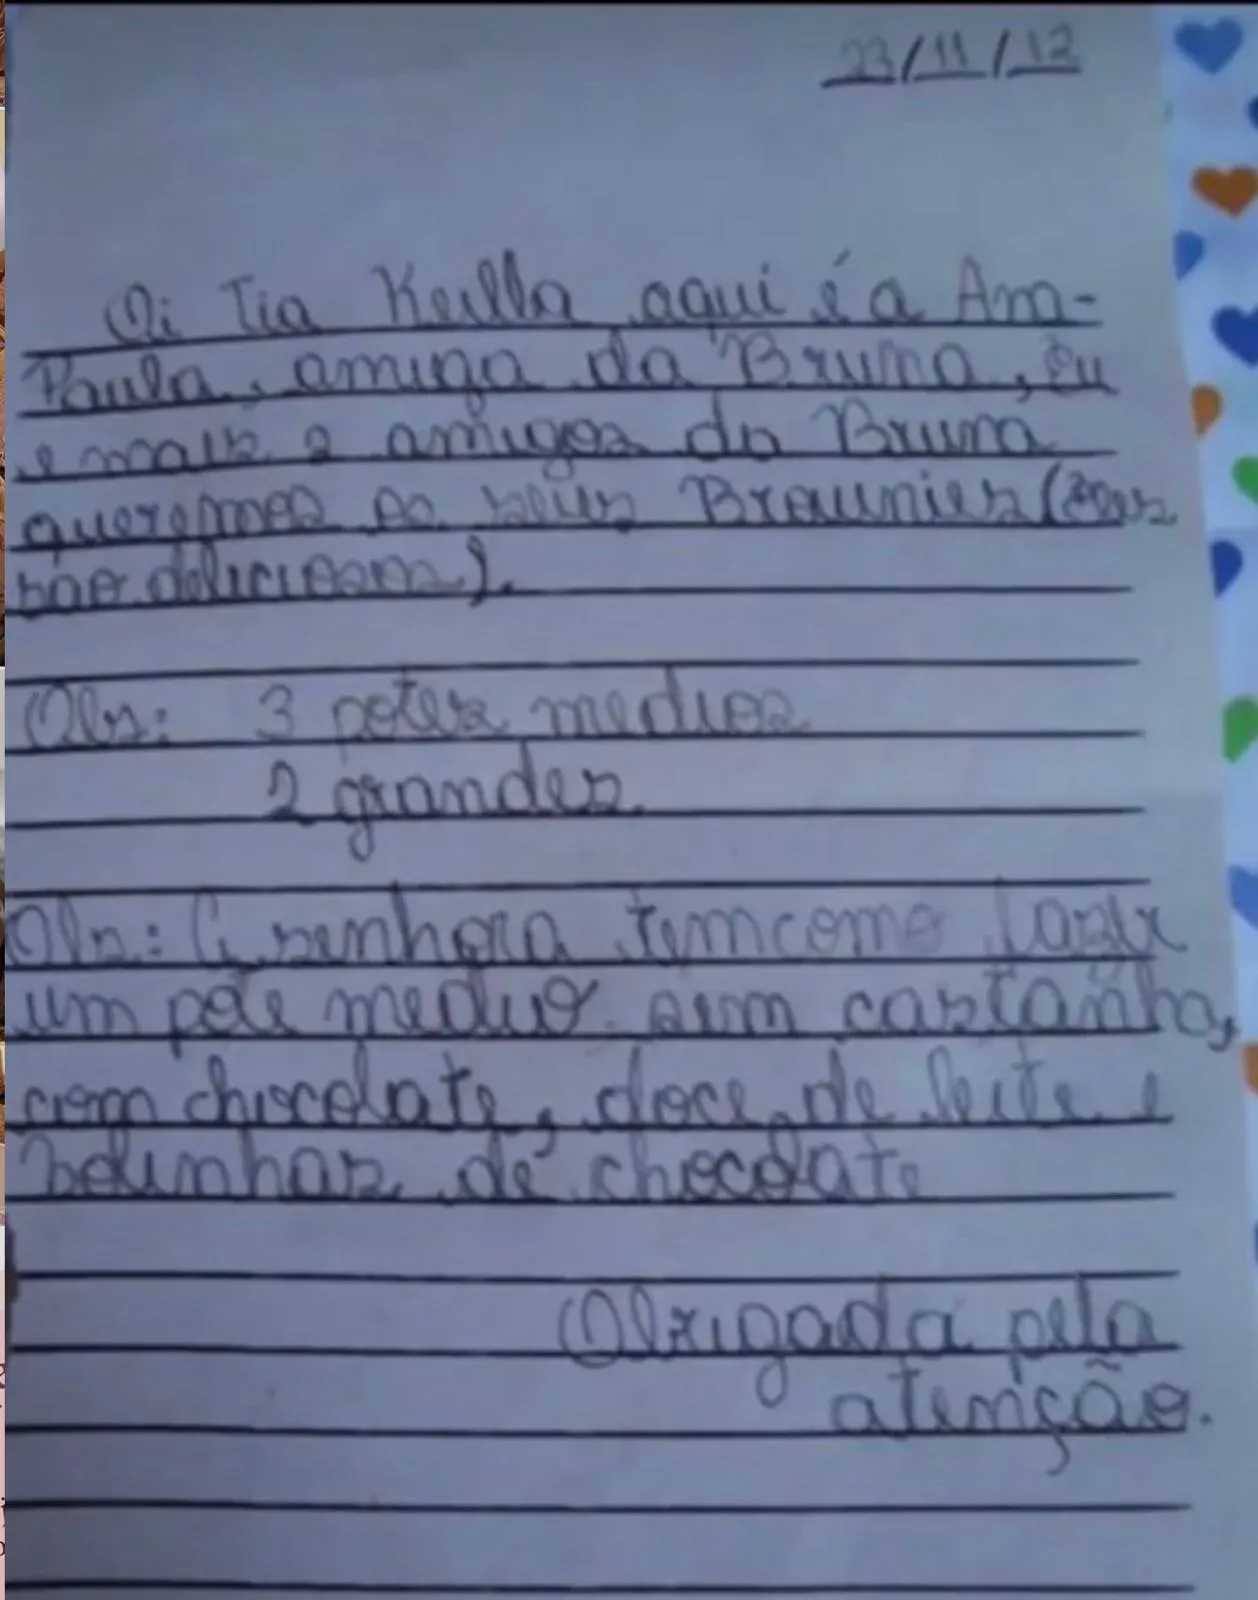 23/11/12
Oi Tia Keilla aqui é a Ana
Paula, amiga da Bruna, eu
e mais 2 amigos da Bruna
queremos os seus Braunies (Eles
são deliciosos).
Obs: 3 potes medios
2 grandes.
Obs: A senhora tem como fazer
um pote medio sem castanha,
com chocolate, doce de leite e
bolinhas de chocolate
Obrigada pela
atenção.